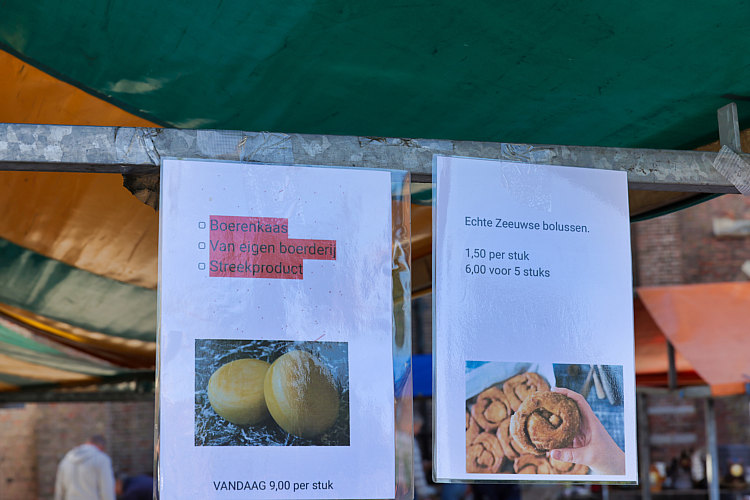 Boerenkaas
Van eigen boerderij
Streekproduct
VANDAAG 9,00 per stuk
Echte Zeeuwse bolussen.
1,50 per stuk
6,00 voor 5 stuks